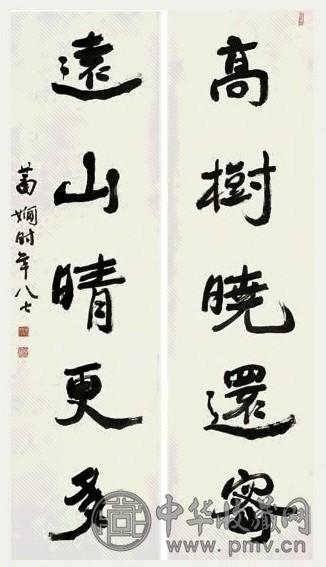 高樹曉還密
遠山晴更多
萧嫻时年八七
中华收藏网
www.pmv.cn